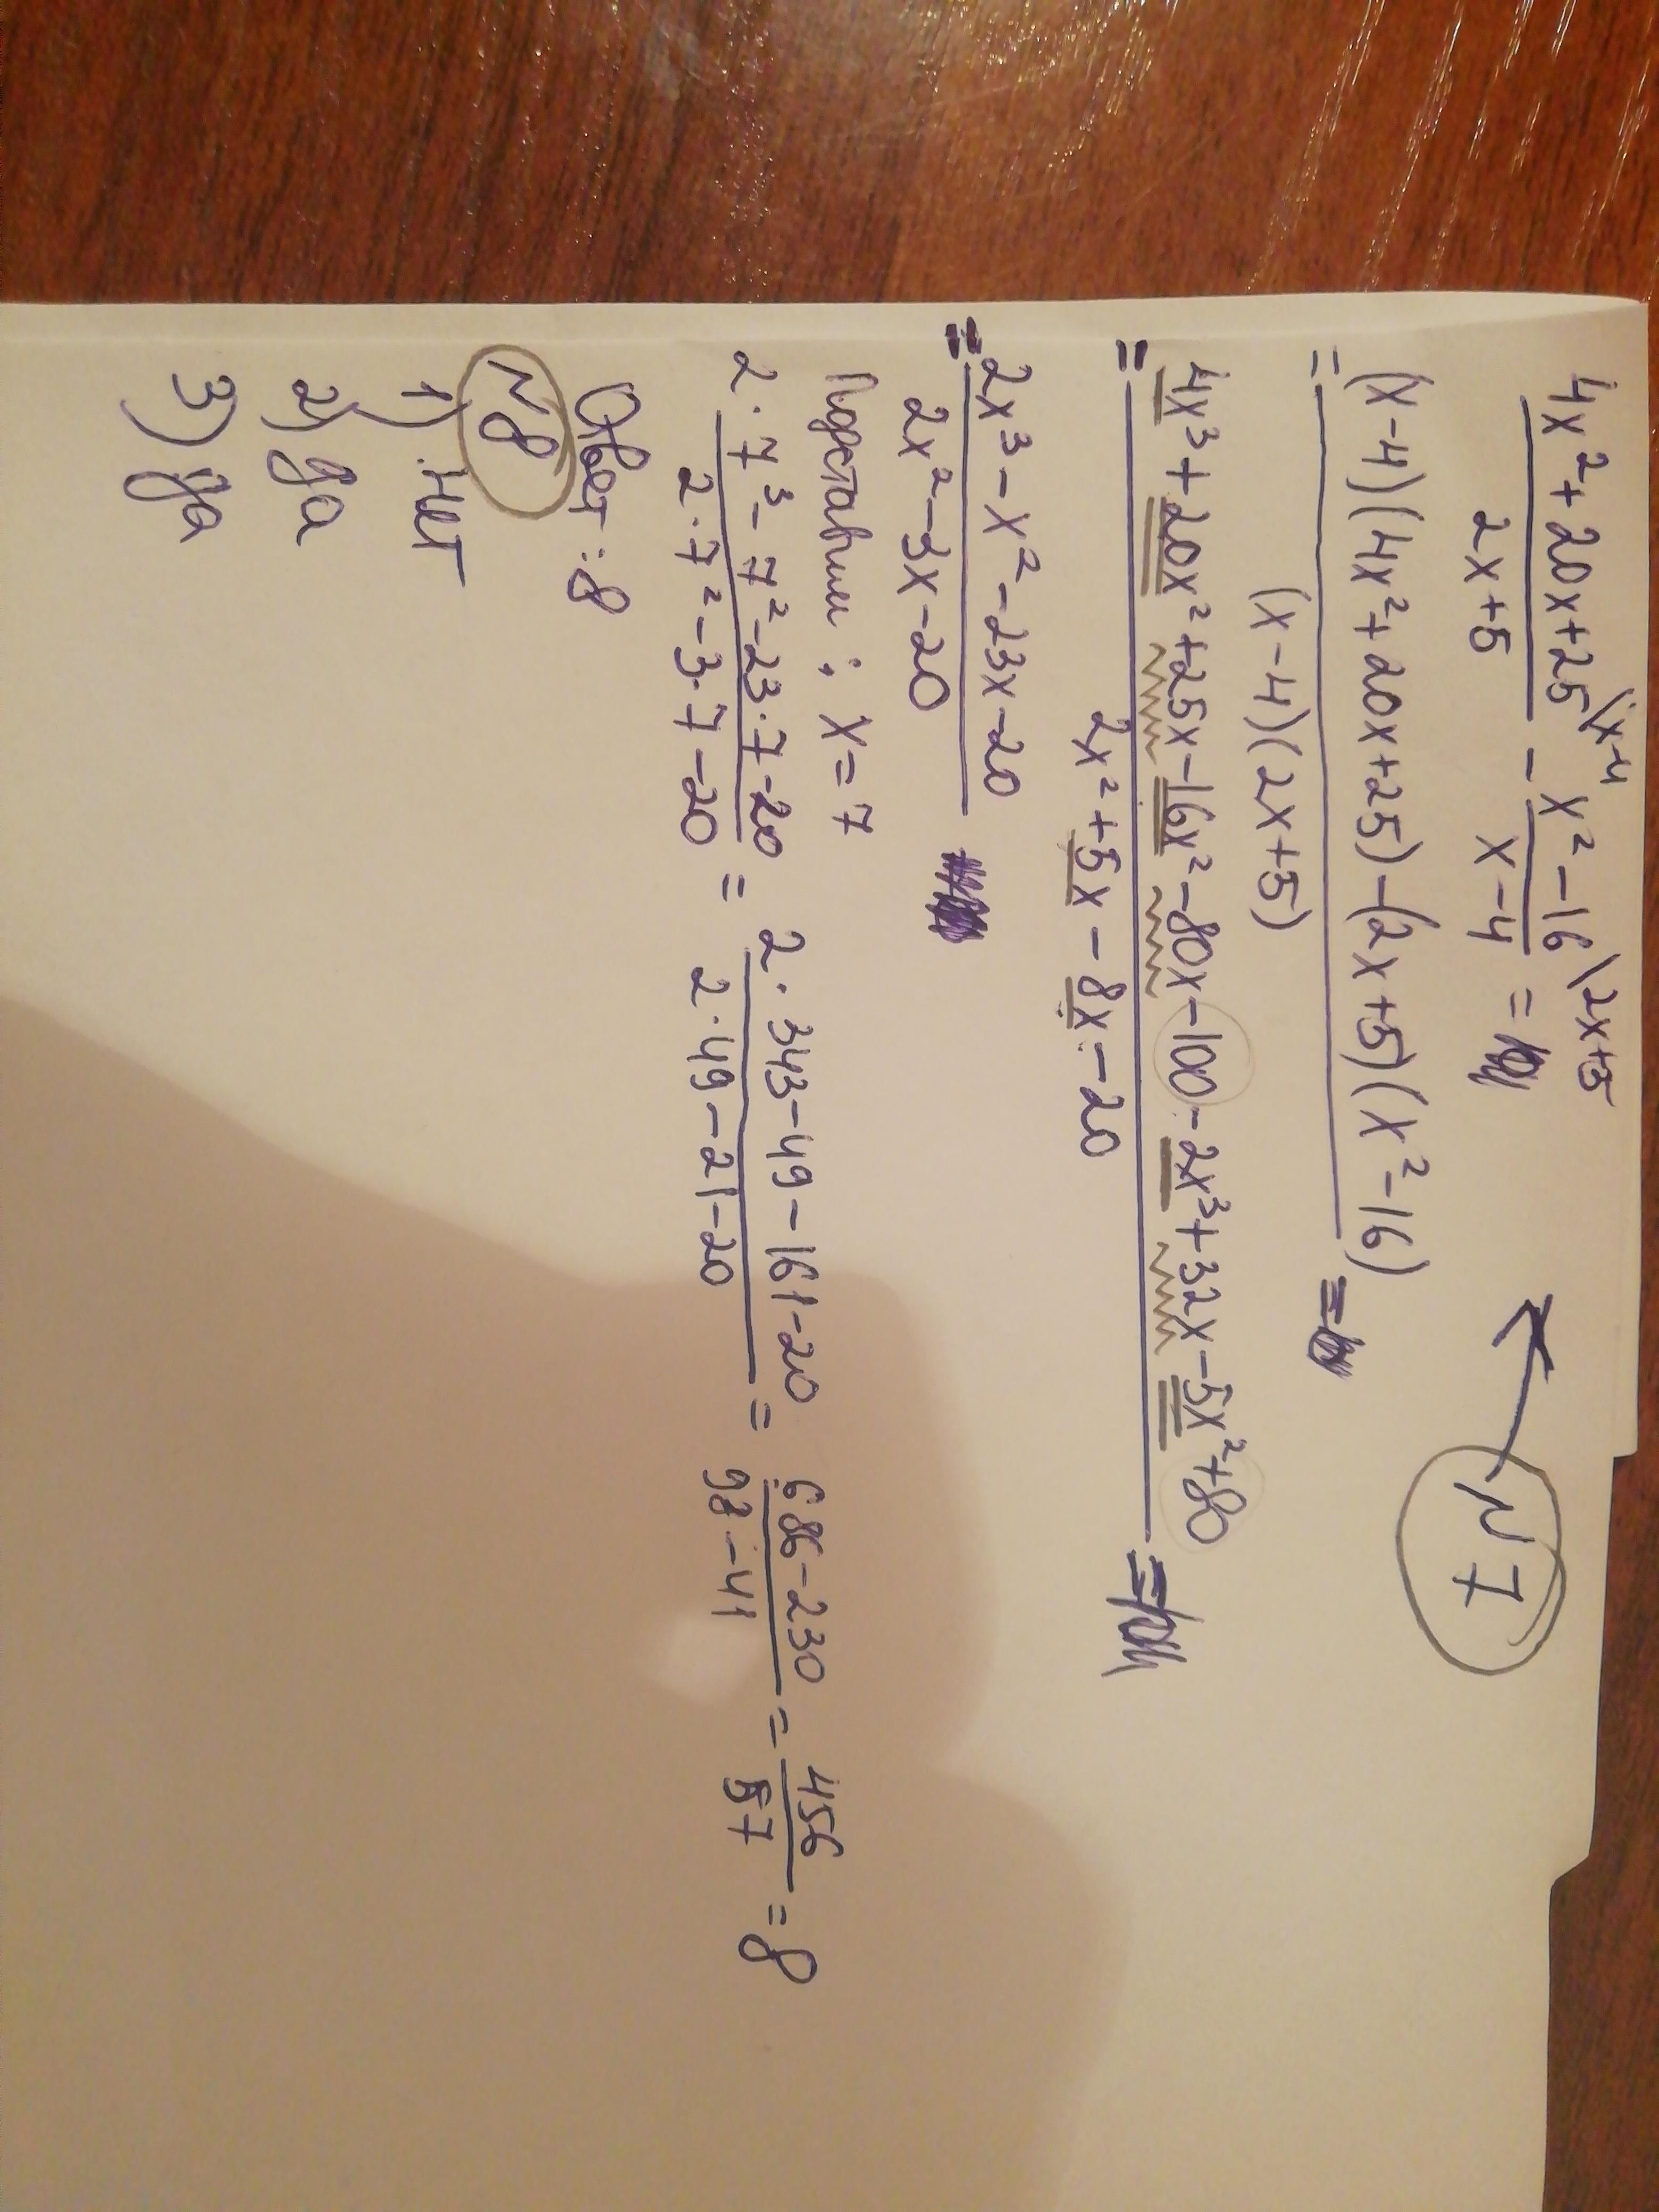 N7
4x²+20x+25\x-4 / 2x+5 - x²-16\2x+5 / x-4 =
= (x-4)(4x²+20x+25)-(2x+5)(x²-16) / (x-4)(2x+5) =
= 4x³+20x²+25x-16x²-80x-100-2x³+32x-5x²+80 / 2x²+5x-8x-20 =
= 2x³-x²-23x-20 / 2x²-3x-20
Подставим: x=7
2·7³-7²-23·7-20 / 2·7²-3·7-20 = 2·343-49-161-20 / 2·49-21-20 = 686-230 / 98-41 = 456 / 57 = 8
Ответ: 8
N8
1) Нет
2) Да
3) Да